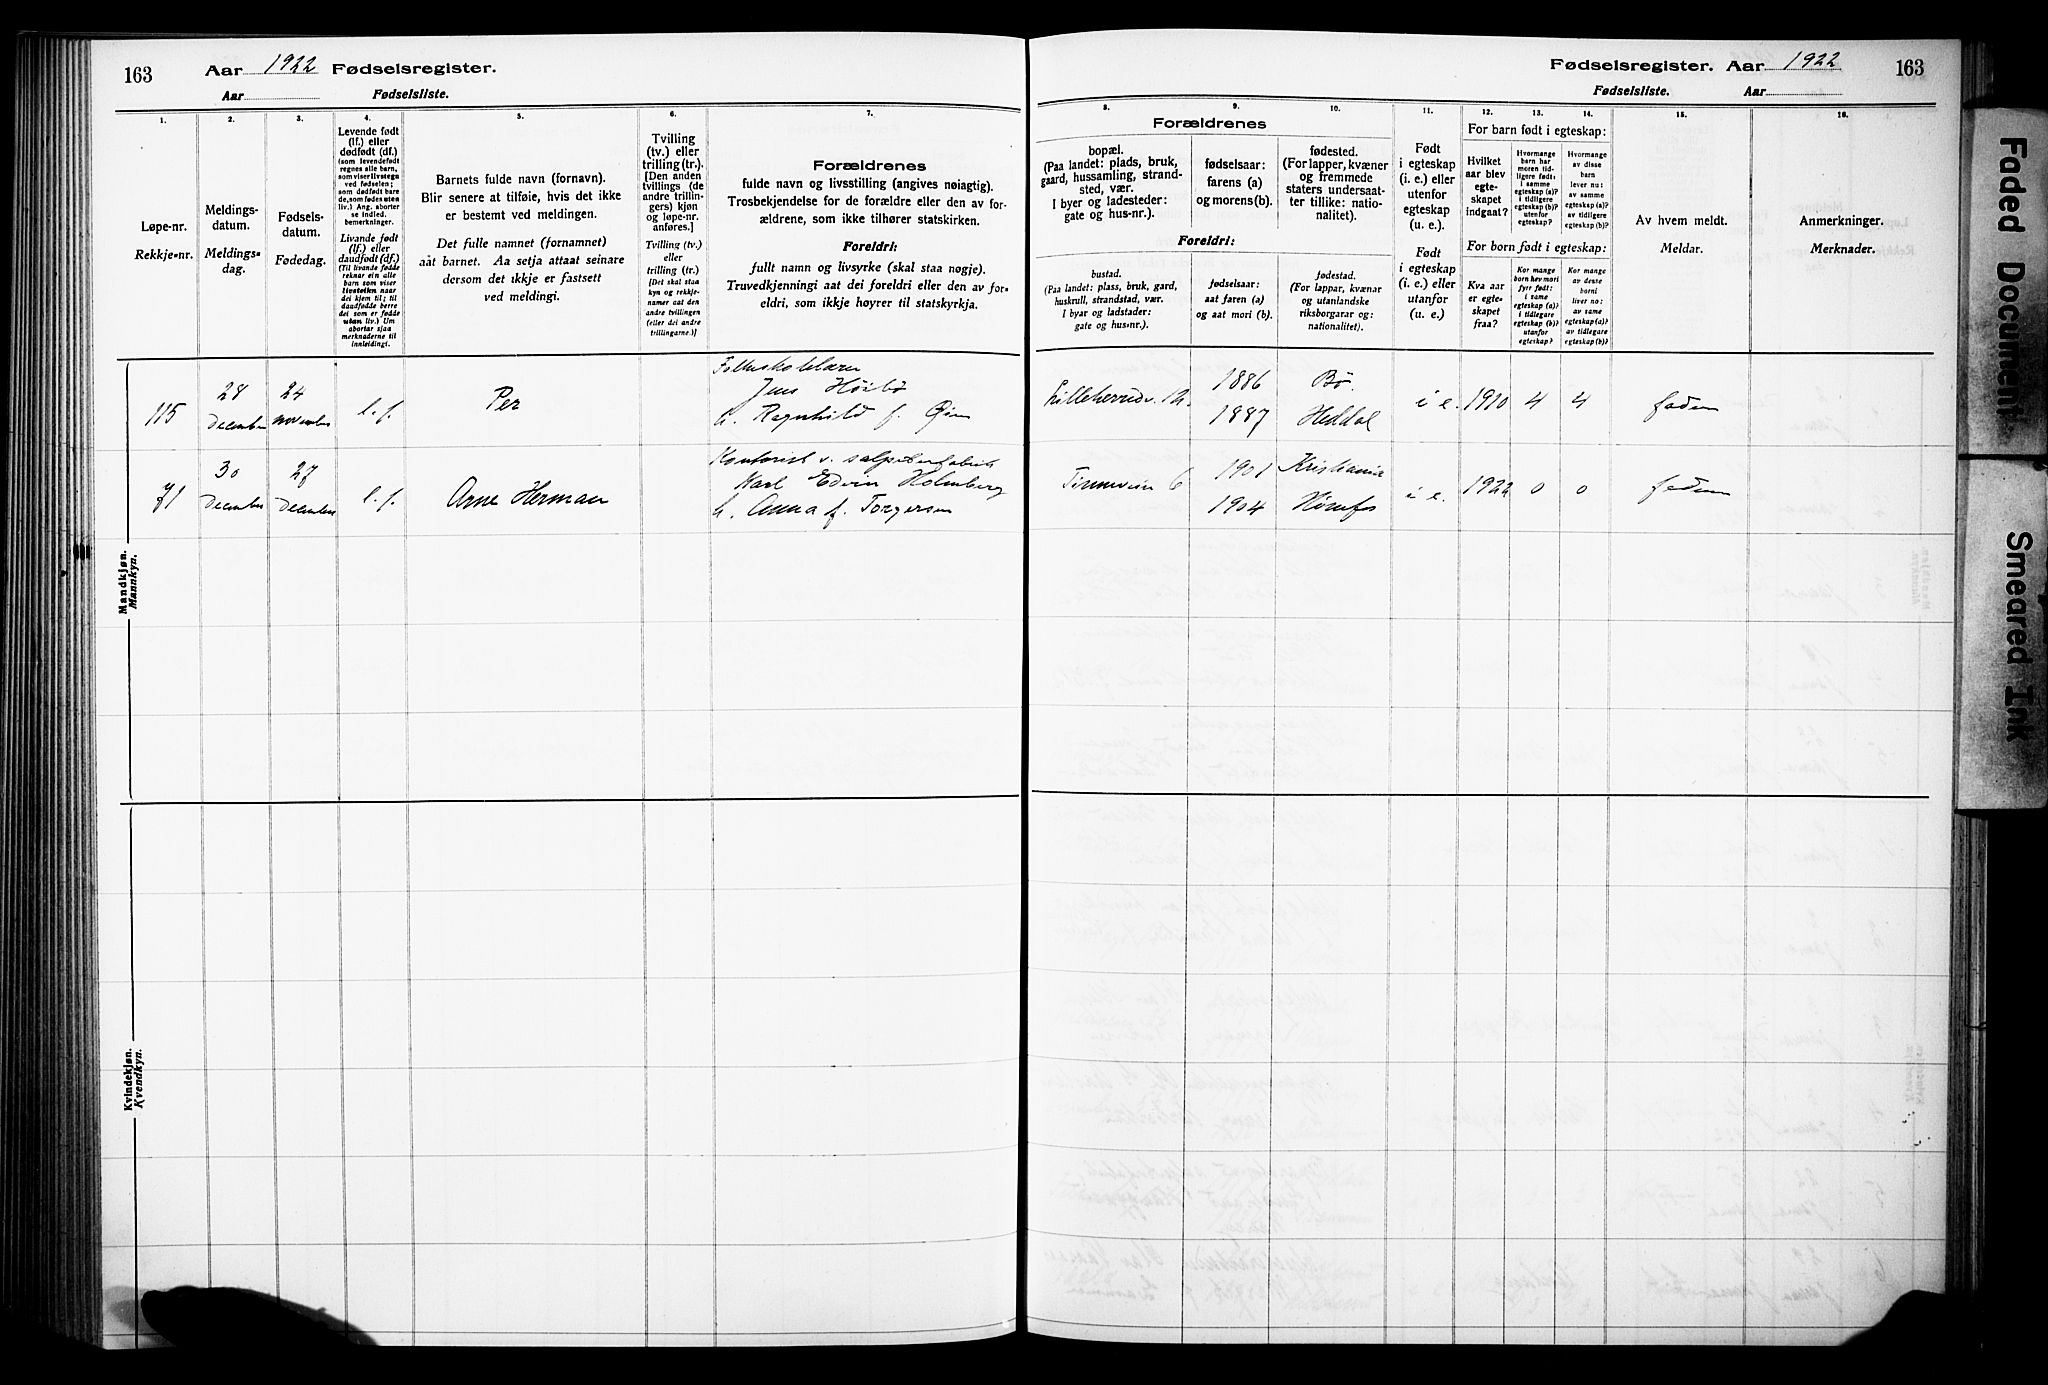 163
Aar 1922 Fødselsregister.
Aar Fødselsliste.
1.
2.
3.
4.
5.
6.
7.
Løpe-nr.
Rekkje-nr.
Meldings-
datum.
Meldings-
dag.
Fødsels-
datum.
Fødedag.
Levende født
(lf.) eller
dødfødt (df.)
(som levendefødt
regnes alle barn,
som viser livstegn
ved fødselen;
som dødfødt bare
de, som fødes uten
liv.) Ang. aborter
se indled.
bemerkninger.
Livande født
(lf.) eller
daudfødt (df.)
(Til livande fødde
reknar ein alle
barn som viser
livsteikn naar
dei kjem til; til
daudfødde berre
dei som er fødde
utan liv.) Um
abortar sjaa
merknaderne til
innleidingi.
Barnets fulde navn (fornavn).
Blir senere at tilføie, hvis det ikke
er bestemt ved meldingen.
Det fulle namnet (fornamnet)
aat barnet. Aa setja attaat seinare
dersom det ikkje er fastsett
ved meldingi.
Tvilling
(tv.) eller
trilling (tr.).
[Den anden
tvillings (de
andre trillin-
gers) kjøn
og løpe-nr.
anføres.]
Tvilling (tv.)
eller
trilling (tr.)
[Det skal staa
kyn og rekkje-
numer aat den
andre tvillingen
(eller dei andre
trillingarne.)]
Forældrenes
fulde navn og livsstilling (angives nøiagtig).
Trosbekjendelse for de forældre eller den av for-
ældrene, som ikke tilhører statskirken.
Foreldri:
fullt namn og livsyrke (skal staa nøgje).
Truvedkjenningi aat dei foreldri eller den av for-
eldri, som ikkje høyrer til statskyrkja.
Mandkjøn.
Mannkyn.
115
28
December
24
November
l.f.
Per
Jens Høibø
h. Ragnhild f.
71
30
December
27
December
l.f.
Arne Herman
Kontorist v. salpeterfabrik
Karl Edvin Holmberg
h. Anna f. Torgersen
Kvindekjøn.
Kvendkyn.
Fødselsregister. Aar 1922
163
Fødselsliste. Aar
8.
9.
10.
11.
12.
13.
14.
15.
16.
Forældrenes
bopæl.
(Paa landet: plads, bruk,
gaard, hussamling, strand-
sted, vær.
I byer og ladesteder:
gate og hus-nr.).
fødselsaar:
farens (a)
og morens (b).
fødested.
(For lapper, kvæner
og fremmede
staters undersaat-
ter tillike: natio-
nalitet).
Foreldri:
bustad.
(Paa landet: plass, bruk, gard,
huskrull, strandstad, vær.
I byar og ladstader:
gate og hus-nr.).
fødselsaar:
aat faren (a)
og aat mori (b).
fødestad.
(For lappar, kvænar
og utanlandske
riksborgarar og:
nationalitet).
Født
i egteskap
(i. e.) eller
utenfor
egteskap
(u. e.).
Født
i egteskap
(i. e.) eller
utanfor
(u. e.)
For barn født i egteskap:
Hvilket
aar blev
egte-
skapet
indgaat?
Hvormange
barn har
moren tid-
ligere født:
i samme
egteskap (a)?
i tidligere
egteskap (b)?
utenfor
egteskap?
Hvormange
av disse
barn
lever nu:
av samme
egteskap (a)?
av tidligere
egteskap (b)?
For born født i egteskap:
Kva aar
er egte-
skapet
fraa?
Kor mange
born hev mori
fyrr født:
i same
egteskap (a)?
i tidlegare
egteskap (b)?
utanfor
egteskap?
Kor mange
av deste
borni
liver no:
av same
egteskap (a)?
av tidlegare
egteskap (b)?
Av hvem meldt.
Meldar.
Anmerkninger.
Merknader.
1886
1887
Bø.
Heddal
i e.
1910
4
4
faderen
6
1901
1904
Kristiania
Hønefos
i e.
1922
0
0
faderen
Faded Document
Smeared Ink